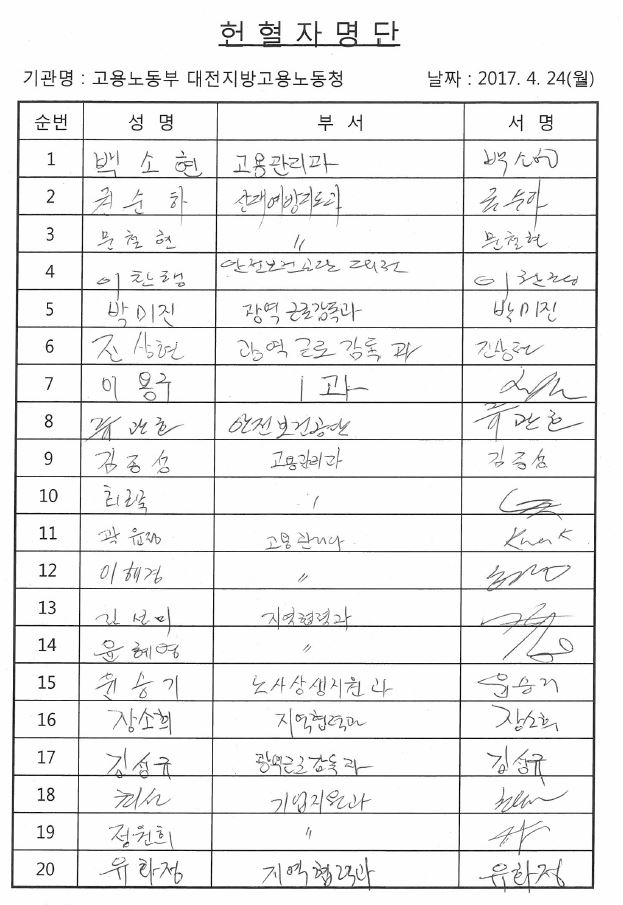 헌 혈 자 명 단
기관명 : 고용노동부 대전지방고용노동청 날짜 : 2017. 4. 24(월)
순번 성 명 부 서 서 명
1 백 소 현 고용관리과 백소현
2 권 순 하 산재예방지도과
3 문 철 현 〃 문철현
4 이 찬 행 안전보건공단
5 박 미 진 광역 근로감독과 박미진
6 진 상현 광역 근로 감독 과 진상현
7 이 용구 1 과
8 류 관 훈 안전보건공단 류 관 훈
9 김 종 성 고용관리과 김종성
10 〃
11 곽 윤정 고용관리과 Kwak
12 이 혜경 〃
13 지역협력과
14 윤 혜영 〃
15 윤 승 기 노사상생지원과 윤승기
16 장소희 지역협력과 장소희
17 김성규 광역근로감독과 김성규
18 기업지원과
19 정원희 〃
20 유 화정 지역협력과 유화정